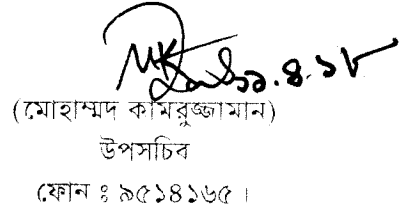 ১১.৪.১৮
(মোহাম্মদ কামরুজ্জামান)
উপসচিব
ফোন ঃ ৯৫১৪১৬৫ ।